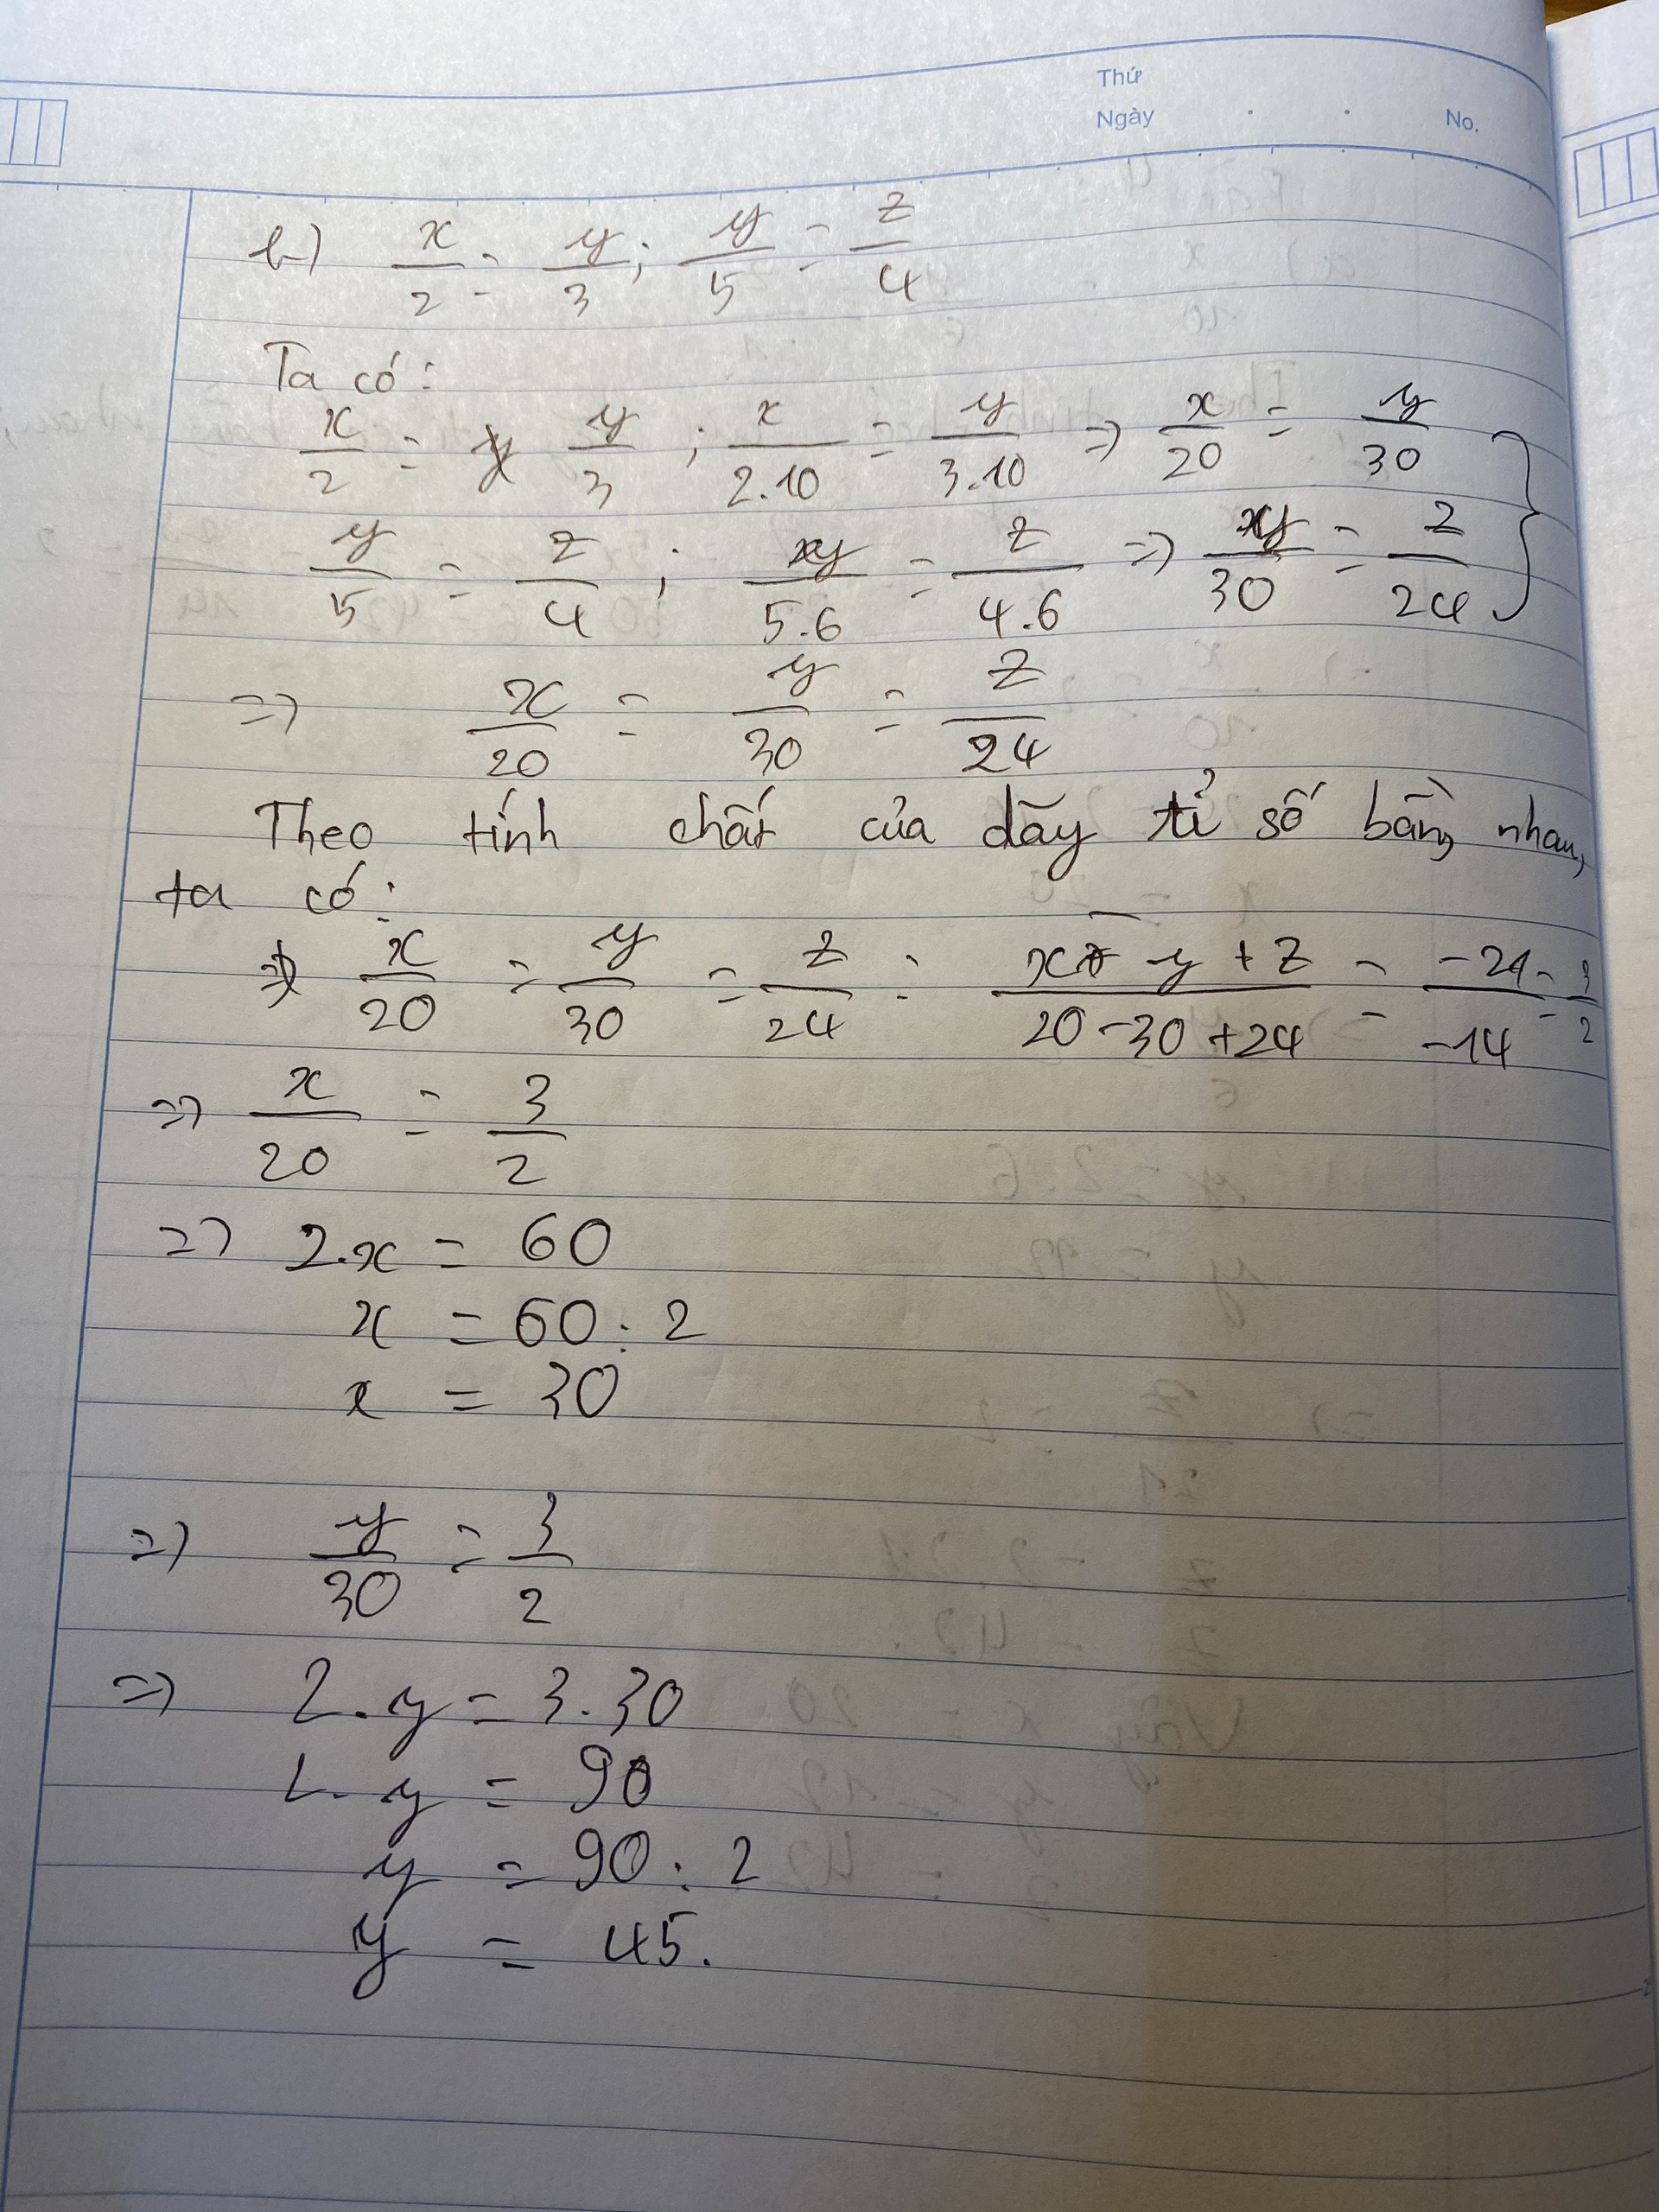 Thứ
Ngày . . No.
b) x/2 = y/3; y/5 = z/4
Ta có:
x/2 = y/3 ; x/2.10 = y/3.10 => x/20 = y/30
y/5 = z/4 ; y/5.6 = z/4.6 => y/30 = z/24
=> x/20 = y/30 = z/24
Theo tính chất của dãy tỉ số bằng nhau,
ta có:
x/20 = y/30 = z/24 = x - y + z/20 - 30 + 24 = -21/-14 = 3/2
=> x/20 = 3/2
=> 2.x = 60
x = 60 : 2
x = 30
=> y/30 = 3/2
=> 2.y = 3.30
2.y = 90
y = 90 : 2
y = 45.